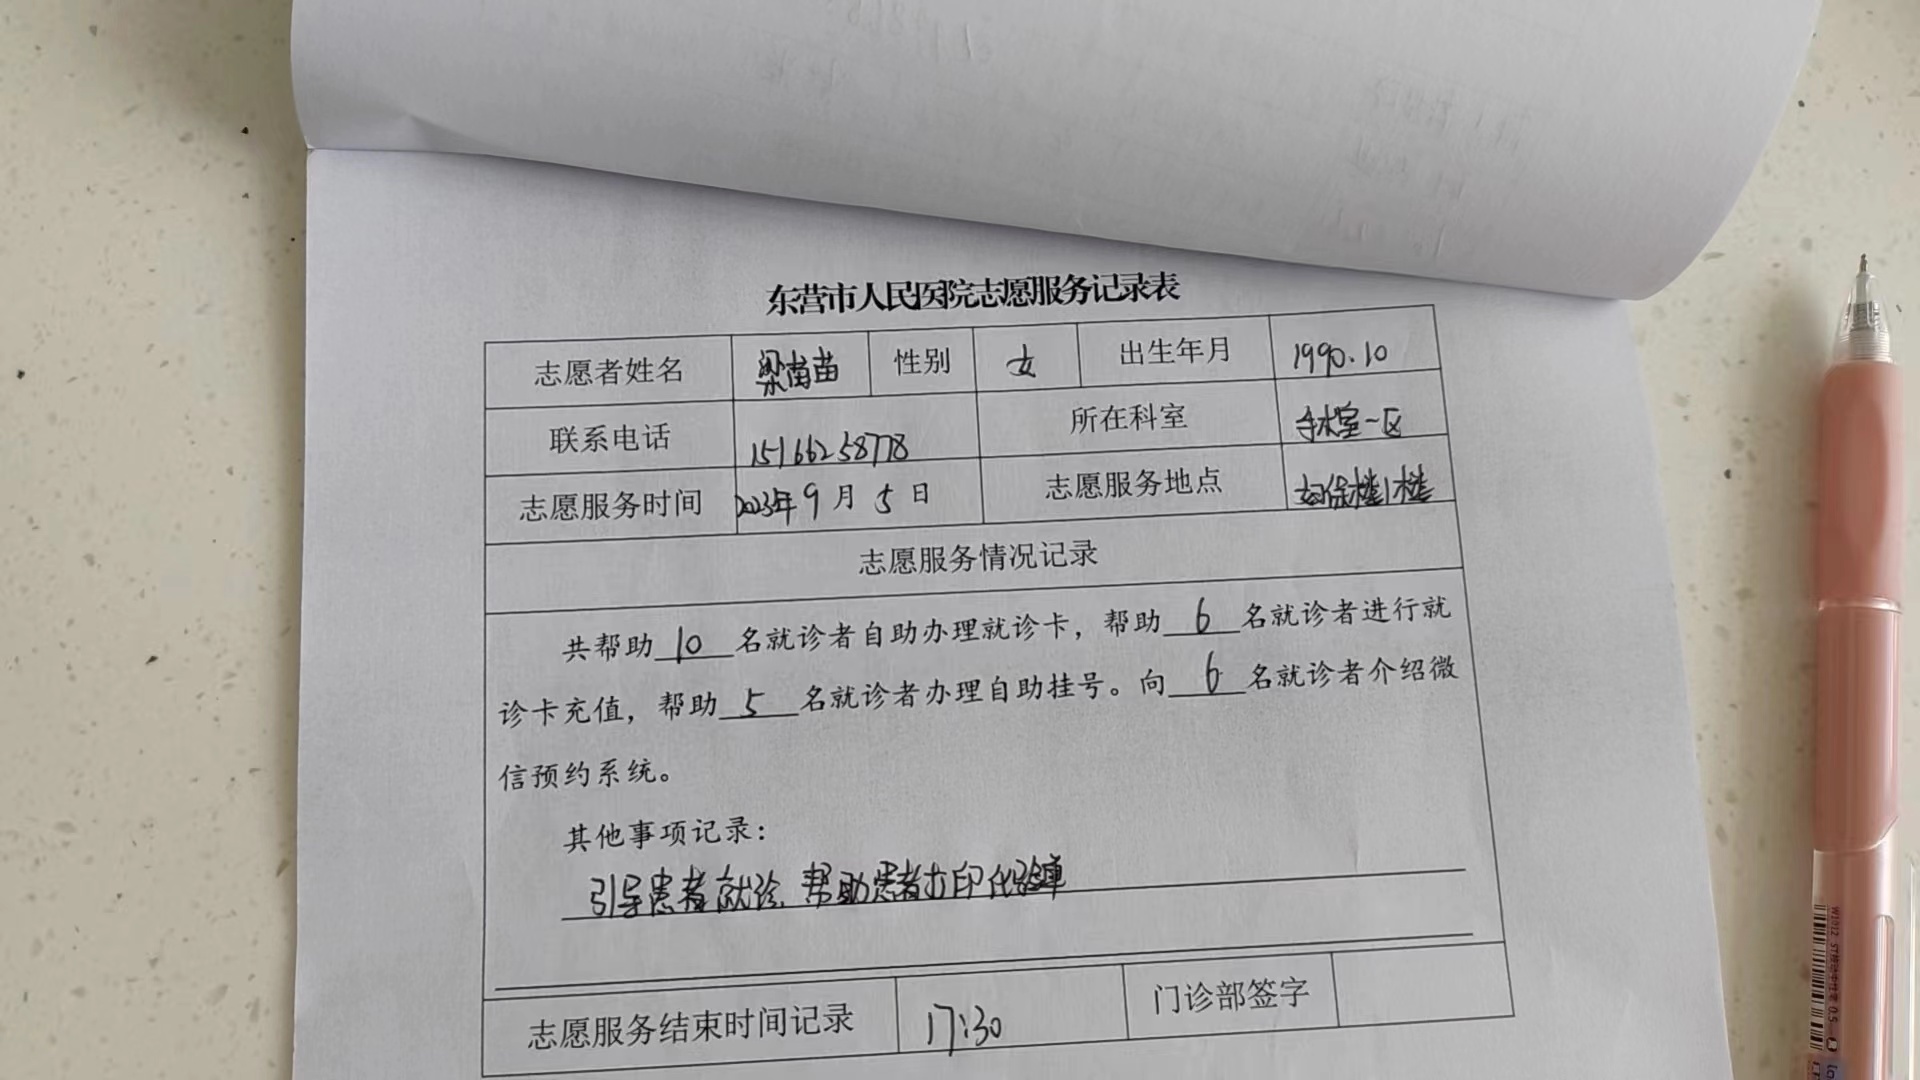 东营市人民医院志愿服务记录表
志愿者姓名 梁苗苗 性别 女 出生年月 1990.10
联系电话 15166258778 所在科室 手术室一区
志愿服务时间 2023年9月5日 志愿服务地点 妇保楼1楼
志愿服务情况记录
共帮助10名就诊者自助办理就诊卡，帮助6名就诊者进行就
诊卡充值，帮助5名就诊者办理自助挂号。向6名就诊者介绍微
信预约系统。
其他事项记录：
引导患者就诊、帮助患者打印化验单
志愿服务结束时间记录 17:30 门诊部签字